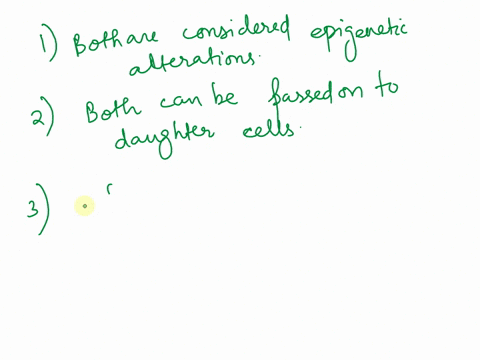 1) Both are considered epigenetic
alterations.
2) Both can be passed on to
daughter cells.
3)